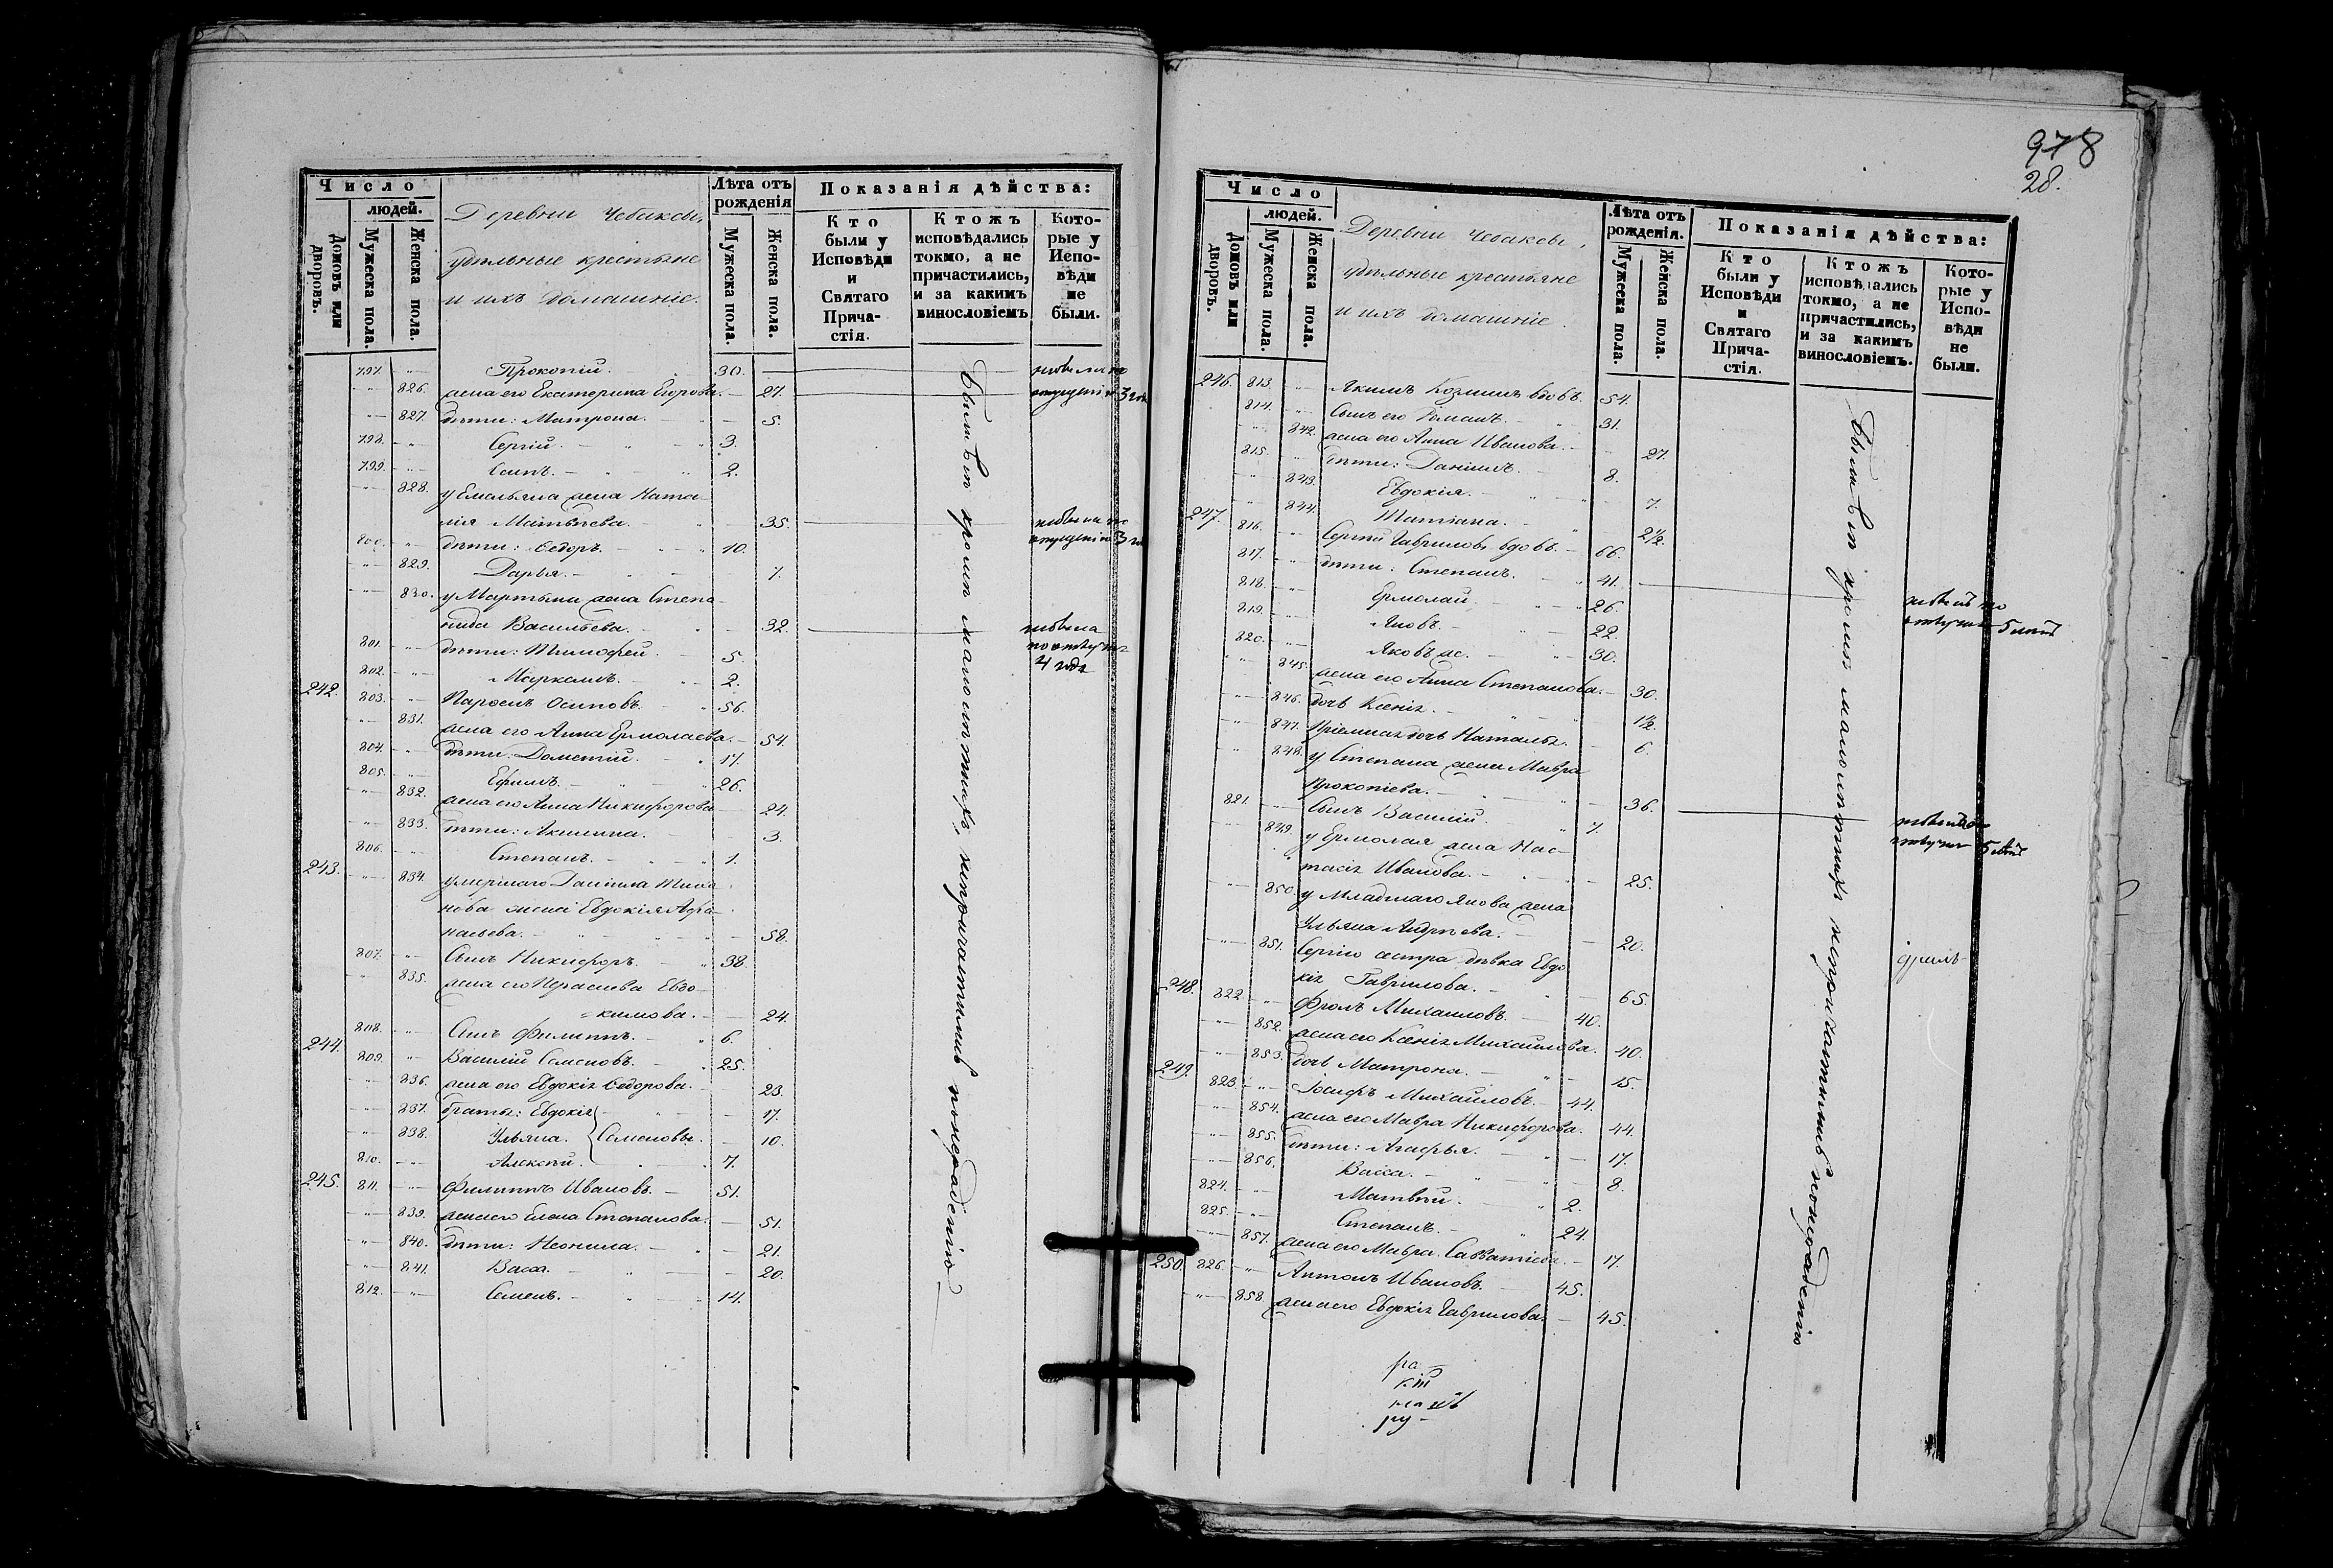 Число
людей.
Домовъ или дворовъ.
Мужеска пола.
Женска пола.
Деревни Чебаксы,
удѣльные крестьяне
и ихъ домашніе.
Лѣта отъ рожденія
Мужеска пола.
Женска пола.
Показанія дѣйства:
Кто были у Исповѣди и Святаго Причастія.
Ктожъ исповѣдались токмо, а не причастились, и за какимъ винословіемъ
Которые у Исповѣди не были.
797. Прокопій. 30.
826. жена его Екатерина Егорова. 27.
827. дѣти: Матрона. 5.
798. Сергій. 3.
799. Осипъ. 2.
828. у Емельяна жена Ната-
лія Матвѣева. 35.
800. дѣти: Ѳедоръ. 10.
829. Дарья. 7.
830. у Мартына жена Степа-
нида Васильева. 32.
801. дѣти: Тимофей. 5.
802. Маркелъ. 2.
242. 803. Парѳенъ Осиповъ. 56.
831. жена его Анна Ермолаева. 54.
804. дѣти: Дометій. 17.
805. Ефимъ. 26.
832. жена его Анна Никифорова 24.
833. дѣти: Акилина. 3.
806. Степанъ. 1.
243. 834. умершаго Даніила
жена Евдокія Афа-
насьева. 58.
807. Сынъ Никифоръ. 38.
835. жена его Парасковья Евдо-
кимова. 24.
808. Сынъ Филиппъ. 6.
244. 809. Василій Семеновъ. 25.
836. жена его Евдокія Ѳедорова. 23.
837. братья: Евдокія 17.
838. Ульяна. Семеновы. 10.
810. Алексѣй. 7.
245. 811. Филиппъ Ивановъ. 51.
839. жена его Елена Степанова. 51.
840. дѣти: Неонила. 21.
841. Васса. 20.
812. Семенъ. 14.
Были всѣ кромѣ малолѣтнихъ, непричастились по нерадѣнію
978
28.
Число
людей.
Домовъ или дворовъ.
Мужеска пола.
Женска пола.
Деревни Чебаксы,
удѣльные крестьяне
и ихъ домашніе.
Лѣта отъ рожденія.
Мужеска пола.
Женска пола.
Показанія дѣйства:
Кто были у Исповѣди и Святаго Причастія.
Ктожъ исповѣдались токмо, а не причастились, и за какимъ винословіемъ.
Которые у Исповѣди не были.
246. 813. Якимъ Козминъ вдовъ. 54.
814. Сынъ его Романъ. 31.
842. жена его Анна Иванова. 27.
815. дѣти: Даніилъ. 8.
843. Евдокія. 7.
844. Татіана. 2 1/2.
247. 816. Сергій Гавриловъ вдовъ. 66.
817. дѣти: Степанъ. 41.
818. Ермолай 26.
819. Яковъ. 22.
820. Яковъ же. 30.
845. жена его Анна Степанова. 30.
846. дочь Ксенія. 1 1/2.
847. Пріемная дочь Наталья. 6.
848. у Степана жена Мавра
Прокопіева. 36.
821. Сынъ Василій. 7.
849. у Ермолая жена Нас-
тасія Иванова. 25.
850. у младшаго Якова жена
Ульяна Андреева. 20.
851. Сергію сестра дѣвка Евдо
кія Гаврилова. 65.
248. 822. Фролъ Михаиловъ. 40.
852. жена его Ксенія Михайлова. 40.
853. дочь Матрона. 15.
249. 823. Іосифъ Михайловъ. 44.
854. жена его Мавра Никифорова. 44.
855. дѣти: Агафья. 17.
856. Васса. 8.
824. Матвѣй. 2.
825. Степанъ. 24.
857. жена его Мавра Савватіева. 17.
250. 826. Антонъ Ивановъ. 45.
858. жена его Евдокія Гаврилова. 45.
Были всѣ кромѣ малолѣтнихъ непричастились по нерадѣнію